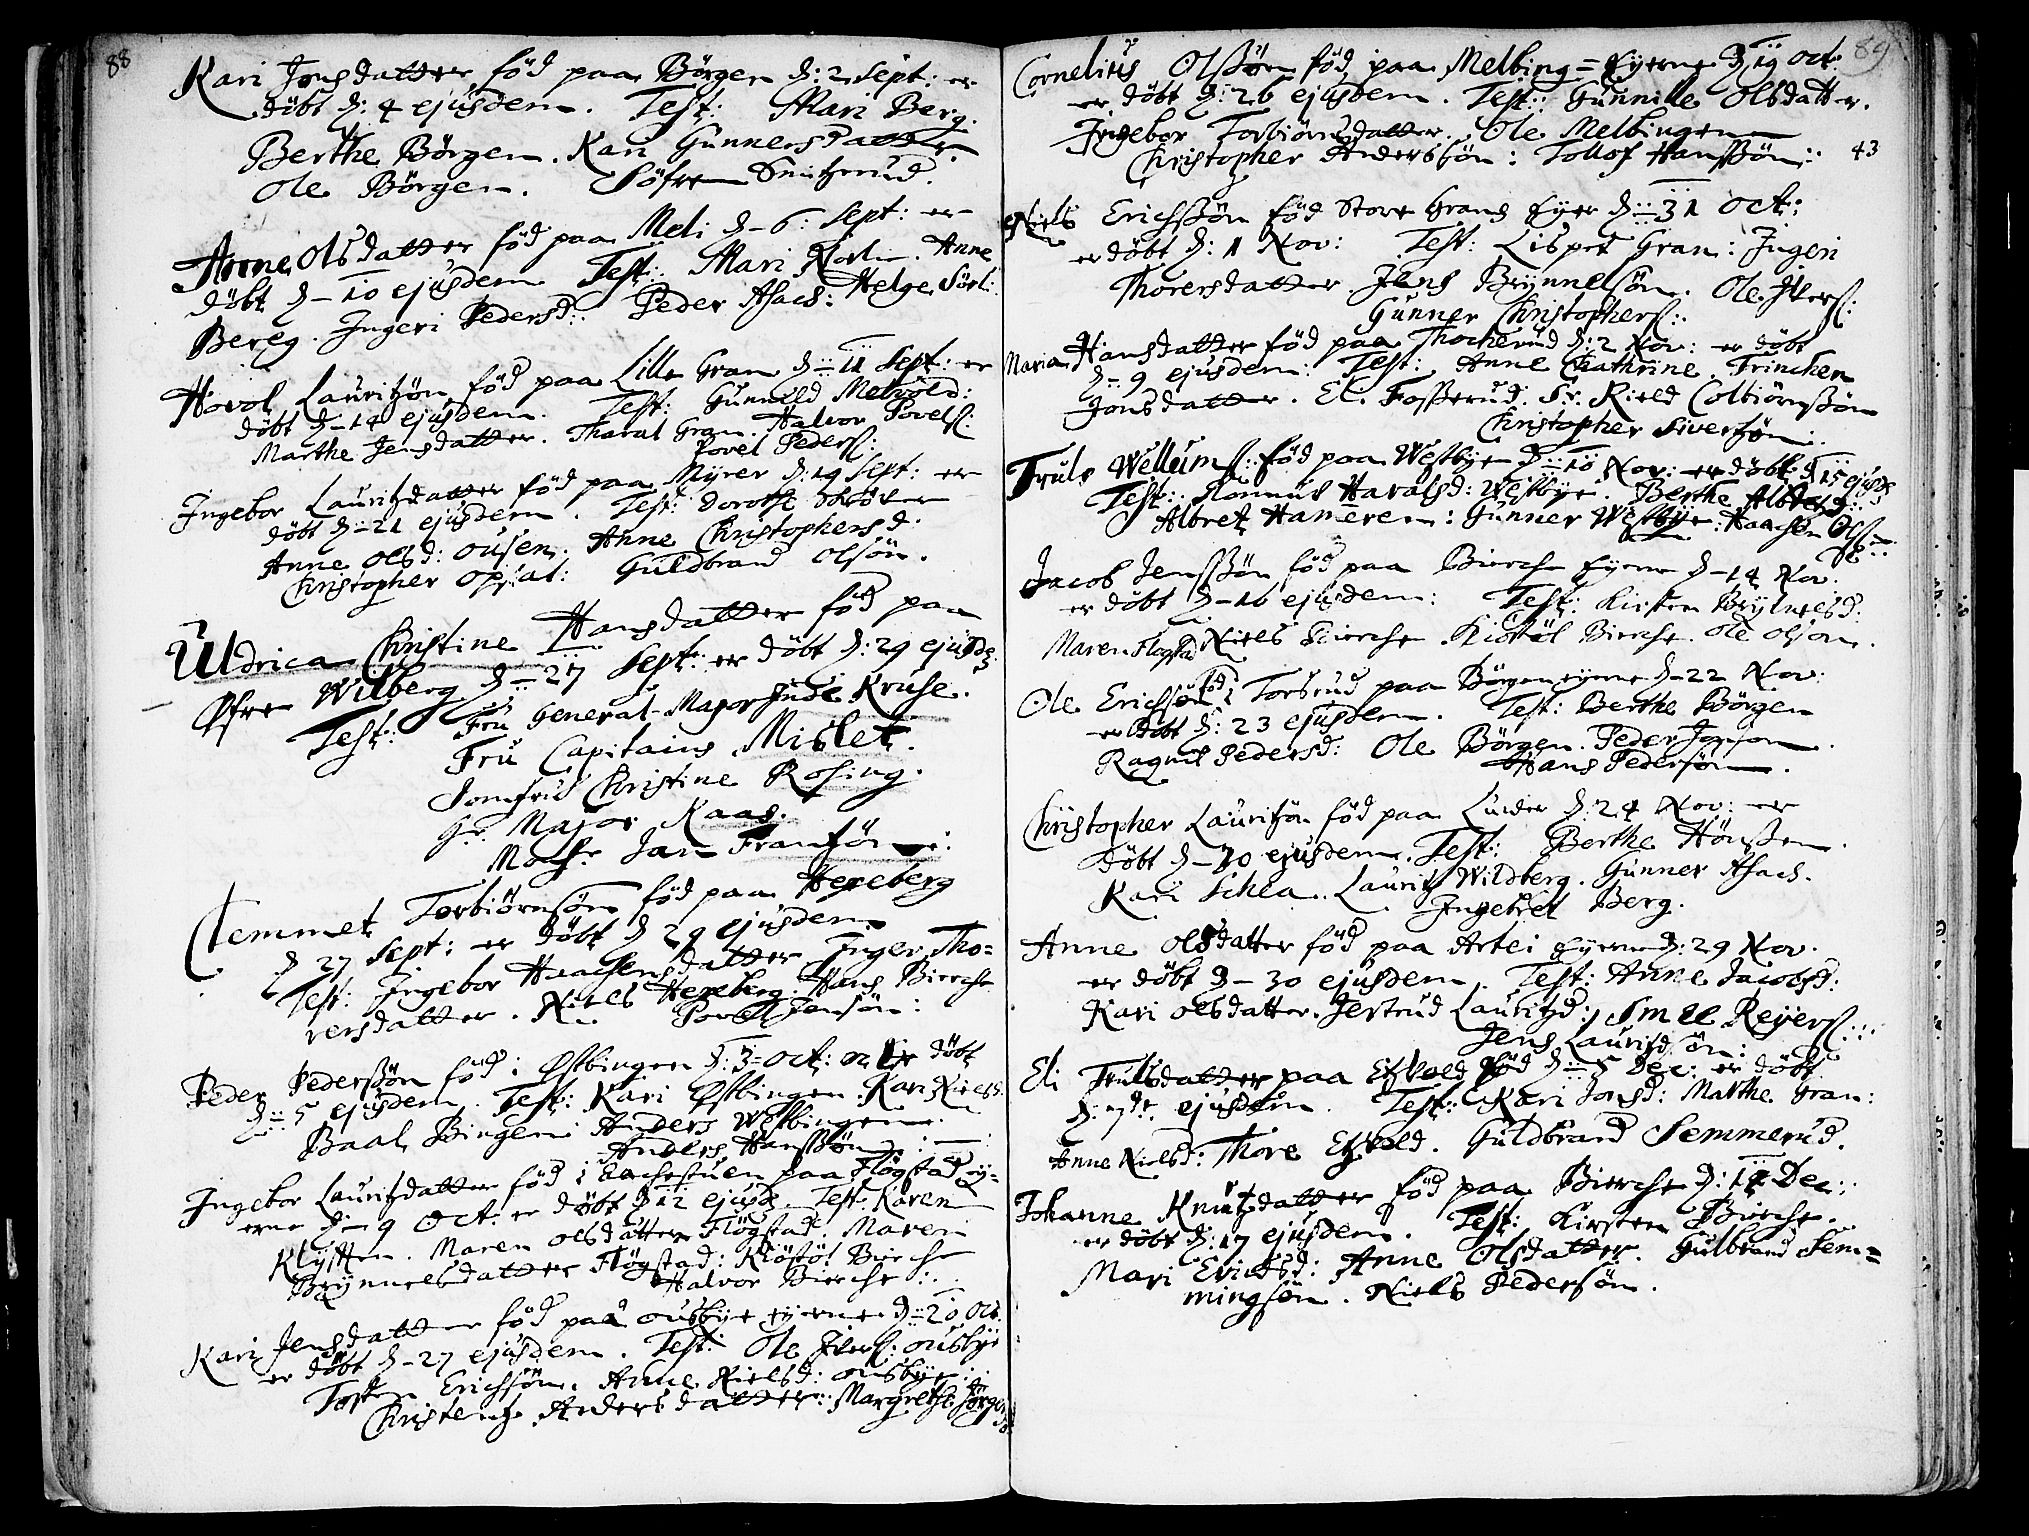 88
Kari Jonsdatter föd paa Börgen d: 2 Sept: er
döbt d: 4 ejusdem. Test: Mari Berg.
Berthe Börgen. Kari Gunnersdatter.
Ole Börgen. Söfren Smitzrud.
Anne Olsdatter föd paa Meli d-6: Sept: er
döbt d-10 ejusdem Test: Mari Norlie. Anne
Bereg. Ingeri Pedersd: Peder Asach: Helge Sörl:
Hovol Lauritzön föd paa Lille Gran d: 11 Sept: er
döbt d-14 ejusdem. Test: Gunneld Melvold:
Marthe Jensdatter. Tharal Gran. Halvor Povelß:
Povel Pederß:
Ingebor Lauritzdatter föd paa Myrer d: 19 Sept: er
döbt d-21 ejusdem. Test: Dorothe Skröver
Anne Olsd: Ousen. Anne Christophersd:
Christopher Opsat: Guldbrand Olsön.
Uldrica Christine Hansdatter föd paa
Øfre Wilberg d-27 Sept: er döbt d: 29 ejusde:
Test: Fru General-Majorinde Kruse.
Fru Capitains Mislet.
Jomfrue Christine Rosing.
Hr. Major Kaas.
Mons: Jan Franszön:
Clemmet Torbiörnsön föd paa Hexeberg
d 27 Sept: er döbt d 29 ejusdem
Test: Ingebor Haachensdatter Inger Tho=
rersdatter. Niels Hexeberg. Hans Bierche
Povel Jensön:
Peder Pederssön föd i Østbingen d: 3= Oct: er döbt
d: 5 ejusdem. Test: Kari Østbingen. Kari Nielsd.
Baal Bingen: Anders Westbingen:
Anders Hanssön:
Ingebor Lauritzdatter föd i Bachestuen paa Flögstad ey=
erne d-9 Oct: er döbt d 12 ejusde Test: Karen
Klyften. Maren Olsdatter Flögstad. Maren
Brynnelsdatter Flögstad: Kiöstöl Bierche
Halvor Bierche:
Kari Jensdatter föd paa Ousbye eyerne d-20 Oct.
er döbt d-27 ejusdem. Test: Ole Iverß: Ousbye
Tosten Erichsön. Anne Nielsd: Ousbye:
Christentz Andersdatter: Margrethe Jörgensd
89
Cornelius Olssön föd paa Melbing=Eyerne d 19 Oct:
er döbt d: 26 ejusdem. Test: Gunnille Olsdatter.
Ingebor Torbiörnsdatter. Ole Melbingen
Christopher Anderssön: Tollof Hanssön: 43
Niels Erichssön föd Store Grans Eyer d: 31 Oct:
er döbt d: 1 Nov: Test: Lispet Gran: Ingeri
Thorersdatter. Jens Brynnelsön. Ole Iverß:
Gunner Christopherß:
Maria Hansdatter föd paa Thocherud d: 2 Nov: er döbt
d-9 ejusdem: Test: Anne Cathrine. Trinchen
Jonsdatter. Eli Fosserud. Sr. Nield Colbiörnssön
Christopher Sivertzön:
Truls Wellumß: föd paa Westbye d: 10 Nov: er döbt: d 15 ejusde
Test: Ronnur Haralsd: Westbye. Berthe Albretzd:
Albret Hameren: Gunner Westbye. Haachen Olß:
Jacob Jenssön föd paa Bierche Eyerne d-14 Nov:
er döbt d-16 ejusdem: Test: Kirsten Brÿlnelsd:
Maren Flogsta Niels Bierche. Kiöstöl Bierche. Ole Olsön.
Ole Erichsön föd i Torsrud paa Börgen eyerne d-22 Nov:
er döbt d: 23 ejusdem. Test: Berthe Börgen
Ragnil Pedersd: Ole Börgen. Peder Jonson.
Hans Pedersön.
Christopher Lauritzön föd paa Linder d: 24 Nov: er
döbt d-30 ejusdem. Test: Berthe Hönssen.
Kari Schea. Lauritz Wildberg. Gunner Asach.
Ingebret Berg.
Anne Olsdatter föd paa Artei Eyerne d: 29 Nov.
er döbt d-30 ejusdem. Test: Anne Jacobsd:
Kari Olsdatter. Jertrud Lauritzd: Smel Reyerß:
Jens Lauritzsön:
Eli Trulsdatter paa Exvold föd d: 5 Dec: er döbt
d: 7de ejusdem. Test: Kari Jonsd: Marthe Gran:
Anne Nielsd: Thore Exvold. Guldbrand Semmerud.
Johanne Knutzdatter föd paa Bierche d: 14 Dec:
er döbt d: 17 ejusdem. Test: Kirsten Bierche.
Mari Erichsd: Anne Olsdatter. Gulbrand Sem=
mingsön. Niels Pedersön.